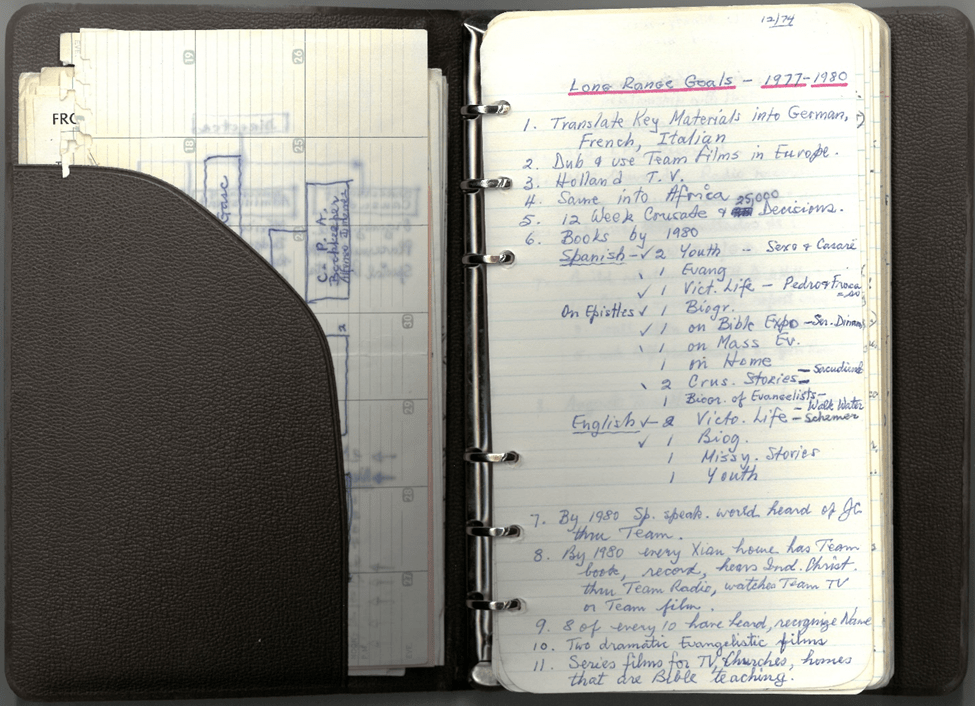 FRO
19
26
18
25
C. P. A.
Bookkeeper
12/74
Long Range Goals - 1977-1980
1. Translate Key Materials into German,
French, Italian
2. Dub & use Team Films in Europe.
3. Holland T.V.
4. Same into Africa
25,000
5. 12 Week Crusade & Decisions.
6. Books by 1980
Spanish - ✓ 2 Youth - Sexo & Casaré
1 Evang
✓ 1 Vict. Life - Pedro &
On Epistles ✓ 1 Biogr.
✓ 1 on Bible Expo -
1 on Mass Ev.
1 on Home
2 Crus. Stories -
1 Biogr. of Evangelists -
- Walk Water
English ✓ 2 Victo. Life - Schemer
✓ 1 Biog.
1 Missy. Stories
1 Youth
7. By 1980 Sp. speak. world heard of JC
thru Team.
8. By 1980 every Xian home has Team
book, record, hears Ind. Christ.
thru Team Radio, watches Team TV
or Team film.
9. 8 of every 10 have heard, recognize Name
10. Two dramatic Evangelistic films
11. Series films for TV, Churches, homes
that are Bible teaching.